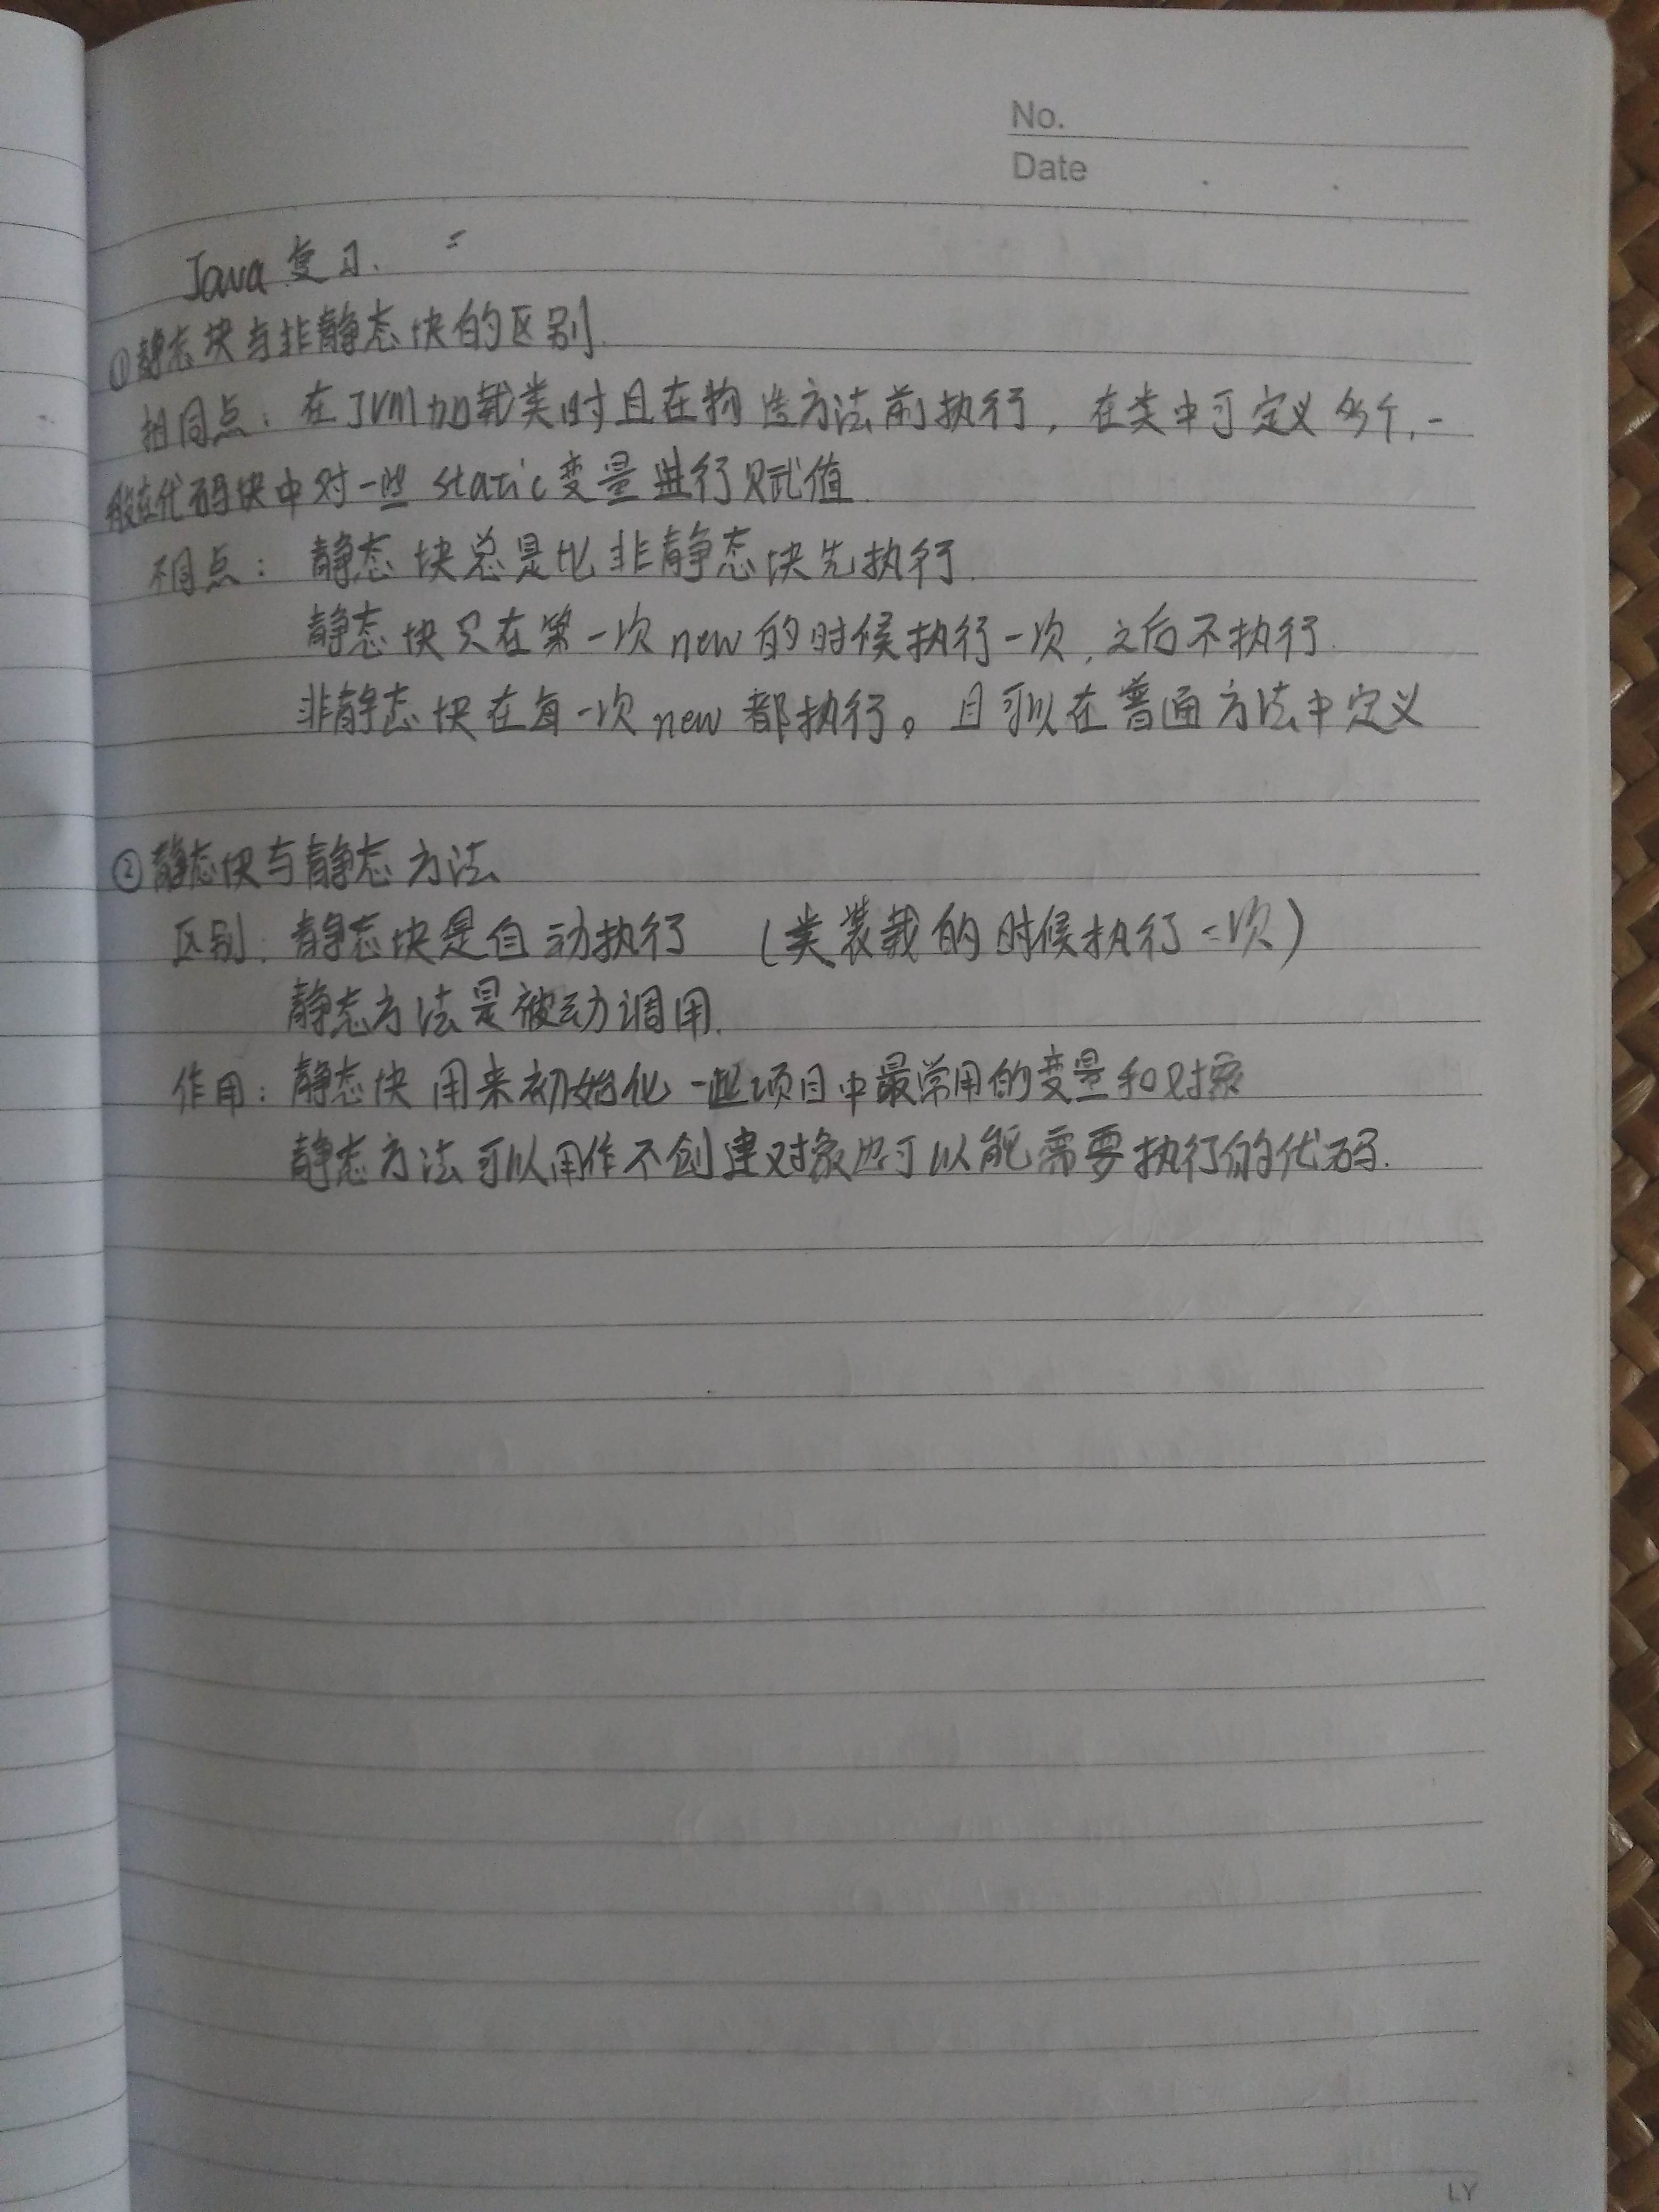 No.
Date
Java 复习. =
①静态块与非静态块的区别.
相同点: 在JVM加载类时且在构造方法前执行, 在类中可定义多个,一
般在代码块中对一些 static变量进行赋值.
不同点: 静态块总是比非静态块先执行.
静态块只在第一次new的时候执行一次,之后不执行.
非静态块在每一次new都执行。且可以在普通方法中定义
②静态块与静态方法
区别. 静态块是自动执行 (类装载的时候执行 次)
静态方法是被动调用.
作用: 静态块用来初始化一些项目中最常用的变量和对象
静态方法可以用作不创建对象也可以能需要执行的代码.
LY